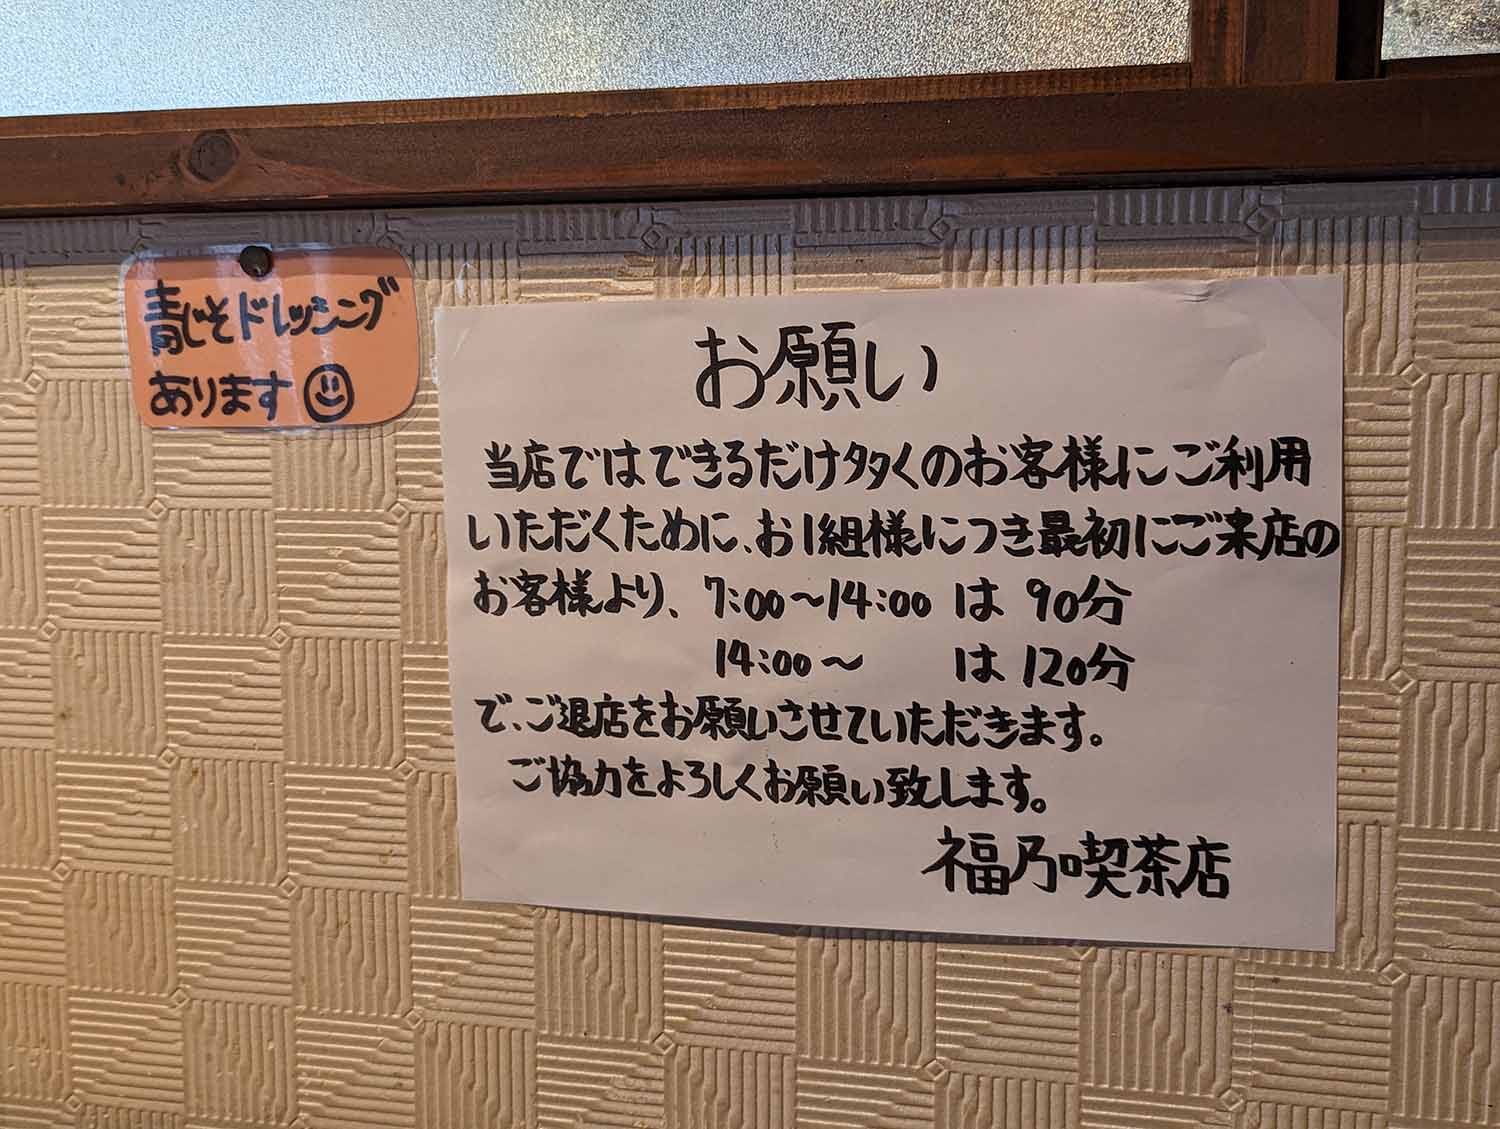 青じそドレッシング
あります
お願い
当店ではできるだけ多くのお客様にご利用
いただくために、お1組様につき最初にご来店の
お客様より、7:00〜14:00 は 90分
14:00〜 は 120分
で、ご退店をお願いさせていただきます。
ご協力をよろしくお願い致します。
福乃喫茶店